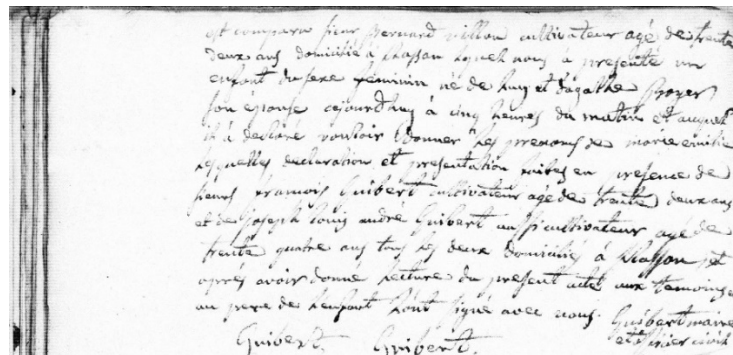 est comparu sieur Bernard cultivateur agé de trente
deux ans domicilié à lequel nous à presenté un
enfant du sexe féminin né de luy et d'agathe Boyer
son épouse cejourd'huy à cinq heures du matin et auquel
il à declaré vouloir donner les prenoms de marie emilie
lesquelles declaration et presentation faites en presence de
sieurs francois Guibert cultivateur age de trente deux ans
et de Joseph louis andré Guibert aussi cultivateur agé de
trente quatre ans tous les deux domiciliés à et
aprés avoir donné lecture du present acte aux temoins
au pere de lenfant l'ont signé avec nous. Guibert maire
Guibert. Guibert. et officier civil